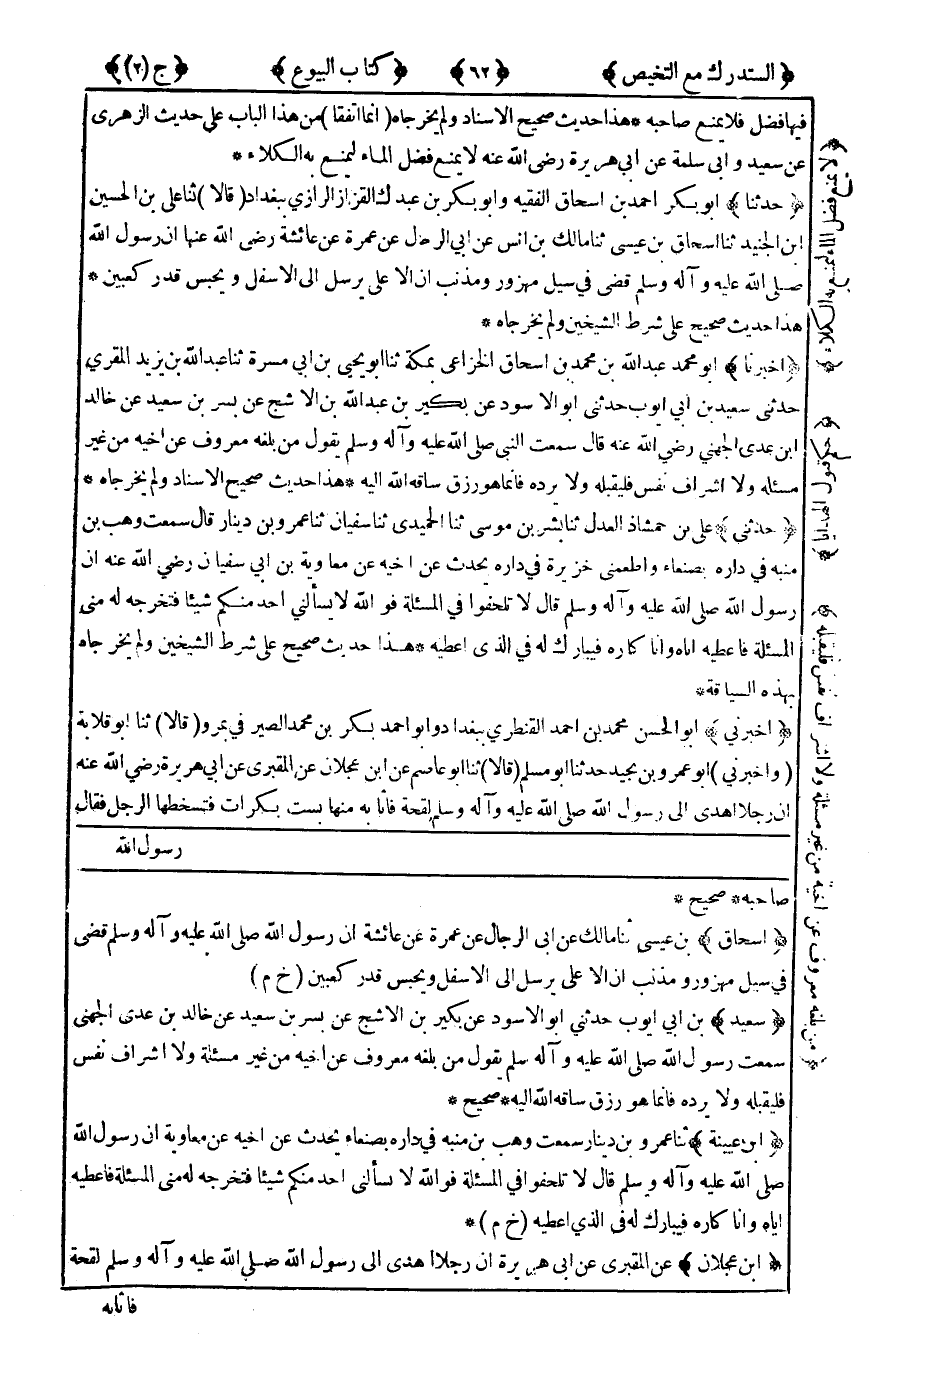 ﴿ المستدرك مع التخيص ﴾ ﴿ ٦٢ ﴾ ﴿ كتاب البيوع ﴾ ﴿ ج (٢) ﴾
فيهافضل فلايمنع صاحبه * هذا حديث صحيح الاسناد ولم يخرجاه ( انما اتفقا ) من هذا الباب على حديث الزهرى
عن سعيد و ابى سلمة عن ابى هريرة رضى الله عنه لا يمنع فضل الماء ليمنع به الكلاء *
﴿ حدثنا ﴾ ابو بكر احمد بن اسحاق الفقيه وابو بكر بن عبدك القزاز الرازي ببغداد ( قالا ) ثنا على بن الحسين
ابن الجنيد ثنا اسحاق بن عيسى ثنا مالك بن انس عن ابي الرجال عن عمرة عن عائشة رضى الله عنها ان رسول الله
صلى الله عليه و آله وسلم قضى في سيل مهزور ومذنب ان الاعلى يرسل الى الاسفل و يحبس قدر كعبين *
هذا حديث صحيح على شرط الشيخين ولم يخرجاه *
﴿ اخبرنا ﴾ ابو محمد عبدالله بن محمد بن اسحاق الخزاعى بمكة ثنا ابو يحيى بن ابي مسرة ثنا عبدالله بن يزيد المقري
حدثنى سعيد بن أبي ايوب حدثنى ابو الاسود عن بكير بن عبدالله بن الاشج عن بسر بن سعيد عن خالد
ابن عدى الجهني رضي الله عنه قال سمعت النبي صلى الله عليه وآله وسلم يقول من بلغه معروف عن اخيه من غير
مسئله ولا اشراف نفس فليقبله ولا يرده فانما هو رزق ساقه الله اليه * هذا حديث صحيح الاسناد ولم يخرجاه *
﴿ حدثني ﴾ على بن حمشاذ العدل ثنا بشر بن موسى ثنا الحميدى ثنا سفيان ثنا عمرو بن دينار قال سمعت وهب بن
منبه في داره بصنعاء واطعمنى خزيرة في داره يحدث عن اخيه عن معاوية بن ابي سفيان رضي الله عنه ان
رسول الله صلى الله عليه وآله وسلم قال لا تلحفوا في المسئلة فو الله لا يسألني احد منكم شيئا فتخرجه له منى
المسئلة فاعطيه اياه وانا كاره فيبارك له في الذى اعطيه * هذا حديث صحيح على شرط الشيخين ولم يخرجاه
بهذه السياقة *
﴿ اخبرني ﴾ ابو الحسن محمد بن احمد القنطري ببغداد وابو احمد بكر بن محمد الصير في بمرو ( قالا ) ثنا ابو قلابة
( واخبرني ) ابو عمرو بن نجيد حدثنا ابو مسلم ( قالا ) ثنا ابو عاصم عن ابن عجلان عن المقبرى عن ابي هريرة رضي الله عنه
ان رجلا اهدى الى رسول الله صلى الله عليه وآله وسلم لقحة فاثابه منها بست بكرات فتسخطها الرجل فقال
رسول الله
صاحبه * صحيح *
﴿ اسحاق ﴾ بن عيسى ثنا مالك عن ابى الرجال عن عمرة عن عائشة ان رسول الله صلى الله عليه وآله وسلم قضى
في سيل مهزور و مذنب ان الاعلى يرسل الى الاسفل ويحبس قدر كعبين ( خ م )
﴿ سعيد ﴾ بن ابي ايوب حدثني ابو الاسود عن بكير بن الاشج عن بسر بن سعيد عن خالد بن عدى الجهنى
سمعت رسول الله صلى الله عليه و آله سلم يقول من بلغه معروف عن اخيه من غير مسئلة ولا اشراف نفس
فليقبله ولا يرده فانما هو رزق ساقه الله اليه * صحيح *
﴿ ابن عيينة ﴾ ثنا عمرو بن دينار سمعت وهب بن منبه في داره بصنعاء يحدث عن اخيه عن معاوية ان رسول الله
صلى الله عليه و آله وسلم قال لا تلحفوا في المسئلة فوالله لا يسألنى احد منكم شيئا فتخرجه له منى المسئلة فاعطيه
اياه وانا كاره فيبارك له فى الذي اعطيه ( خ م ) *
﴿ ابن عجلان ﴾ عن المقبرى عن ابى هريرة ان رجلا اهدى الى رسول الله صلى الله عليه و آله وسلم لقحة
فاثابه
﴿ من بلغه معروف عن اخيه من غير مسئلة ولا اشراف نفس فليقبله ﴾